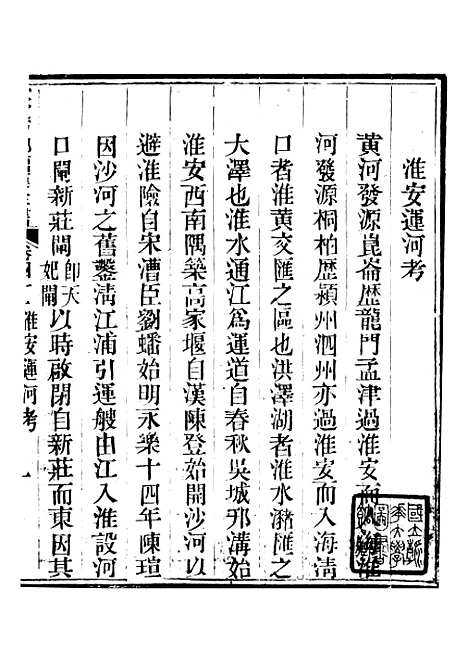 淮安運河考
黃河發源崑崙歴龍門孟津過淮安而入海淮
河發源桐柏歴潁州泗州亦過淮安而入海清
口者淮黃交匯之區也洪澤湖者淮水瀦匯之
大澤也淮水通江爲運道自春秋吳城邗溝始
淮安西南隅築高家堰自漢陳登始開沙河以
避淮險自宋漕臣劉蟠始明永樂十四年陳瑄
因沙河之舊鑿淸江浦引運艘由江入淮設河
口閘新莊閘卽天妃閘以時啟閉自新莊而東因其
淮安運河考